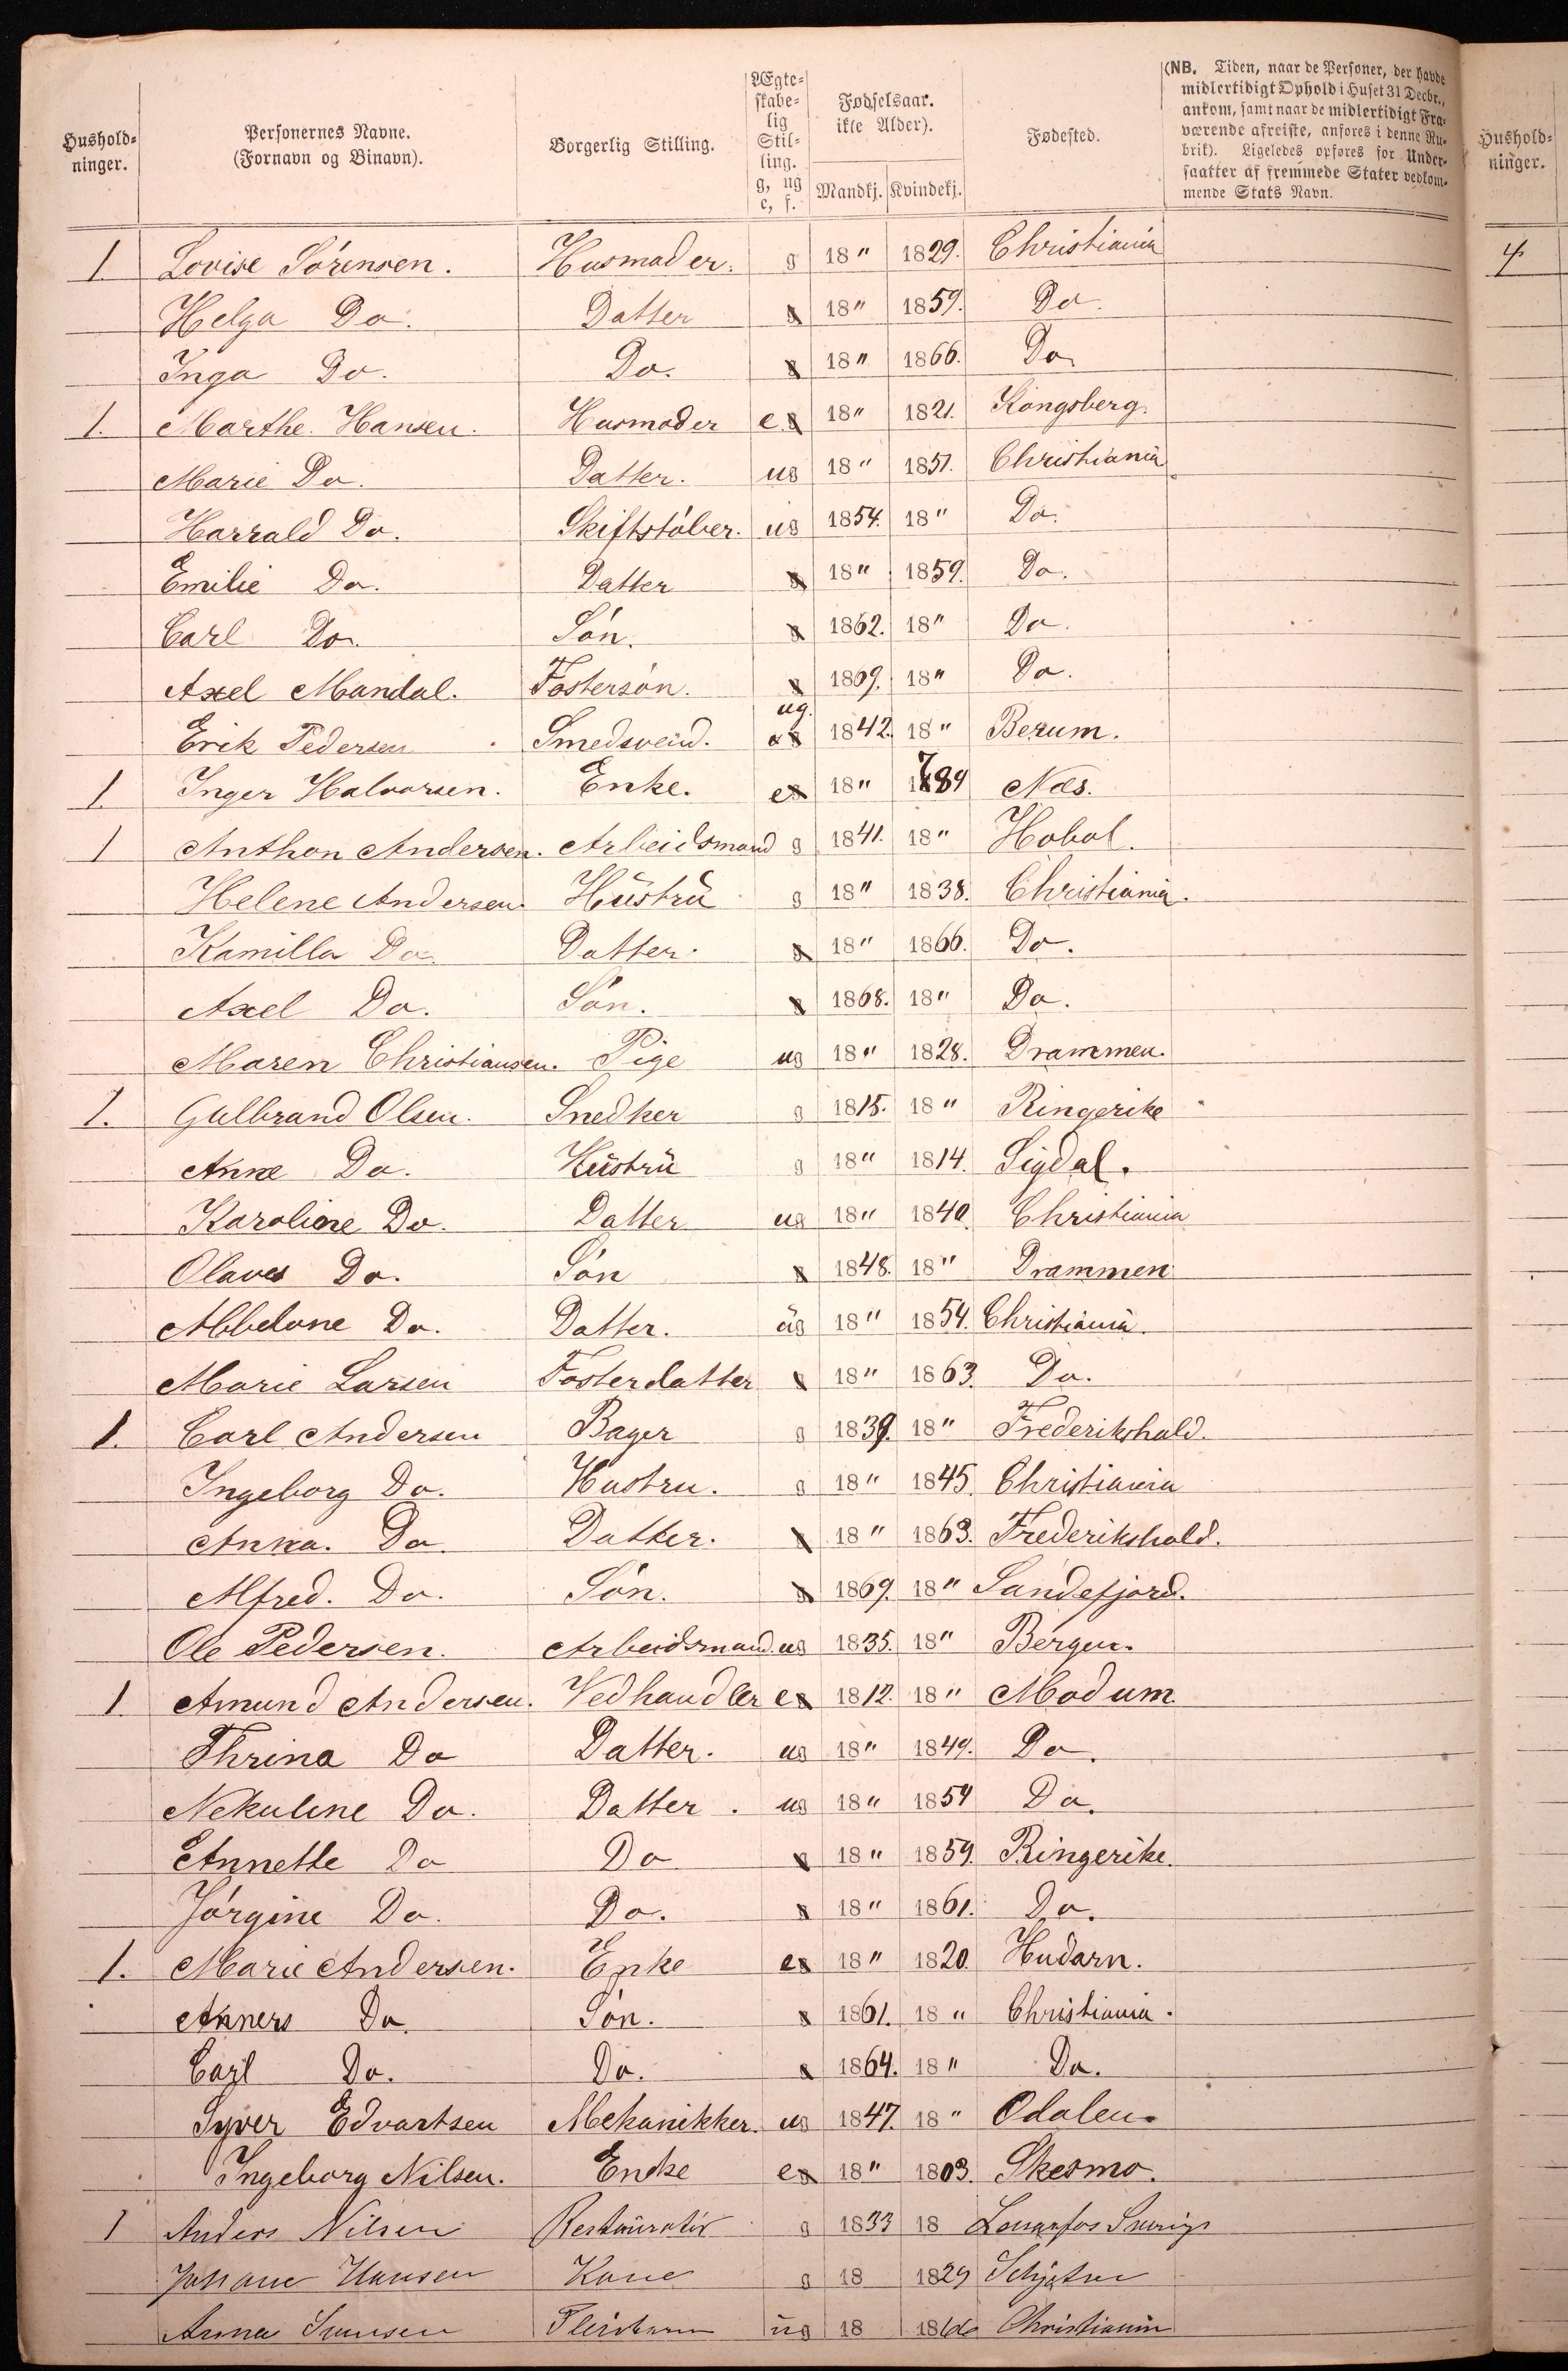 Hushold-
ninger.
Personernes Navne.
(Fornavn og Binavn).
Borgerlig Stilling.
Ægte-
skabe-
lig
Stil-
ling.
g, ug
e, f.
Fødselsaar.
ikke Alder).
Mandkj. Kvindekj.
Fødested.
(NB. Tiden, naar de Personer, der havde
midlertidigt Ophold i Huset 31 Decbr.,
ankom, samt naar de midlertidigt Fra-
værende afreiste, anføres i denne Ru-
brik). Ligeledes opføres for Under-
saatter af fremmede Stater vedkom-
mende Stats Navn.
Hushold-
ninger.
1 Lovise Sörensen. Husmoder. g 18 " 1829. Christiania
4
Helga Do. Datter g 18 " 1859. Do.
Inga Do. Do. g 18 " 1866. Do.
1. Marthe Hansen. Husmoder e g 18 " 1821. Kongsberg.
Marie Do. Datter. ug 18 " 1851. Christiania
Harrald Do. Skiftstöber. ug 1854. 18 " Do.
Emilie Do. Datter g 18 " 1859. Do.
Carl Do. Sön. g 1862. 18 " Do.
Axel Mandal. Fostersön. g 1869. 18 " Do.
Erik Pedersen Smedsvend. ug. 1842. 18 " Berum.
1. Inger Halvorsen. Enke. e g 18 " 1789 Næs.
1 Anthon Andersen. Arbeidsmand g 1841. 18 " Hobol.
Helene Andersen. Hüstrü g 18 " 1838. Christiania.
Kamilla Do. Datter. g 18 " 1866. Do.
Axel Do. Sön. g 1868. 18 " Do.
Maren Christiansen. Pige ug 18 " 1828. Drammen.
1. Gulbrand Olsen. Snedker g 1815. 18 " Ringerike
Anne Do. Hüstrü g 18 " 1814. Sigdal.
Karoline Do. Datter ug 18 " 1840. Christiania
Olaves Do. Sön g 1848. 18 " Drammen
Abbelone Do. Datter. ug 18 " 1854. Christiania.
Marie Larsen Fosterdatter g 18 " 1863. Do.
1. Carl Andersen Bager g 1839. 18 " Frederikshald.
Ingeborg Do. Hustru. g 18 " 1845. Christiania
Anna. Do. Datter. g 18 " 1863. Frederikshald.
Alfred. Do. Sön. g 1869. 18 " Sandefjord.
Ole Pedersen. Arbeidsmand. ug 1835. 18 " Bergen.
1. Amund Andersen. Vedhandler e g 1812. 18 " Modum.
Thrina Do Datter. ug 18 " 1849. Do.
Nekuline Do. Datter. ug 18 " 1854 Do.
Annette Do Do g 18 " 1859. Ringerike.
Jörgine Do. Do. g 18 " 1861. Do.
1. Marie Andersen. Enke e g 18 " 1820. Hudarn.
Anners Do. Sön. g 1861. 18 " Christiania.
Carl Do. Do. g 1864. 18 " Do.
Syver Edvartsen Mekanikker. ug 1847. 18 " Odalen.
Ingeborg Nilsen. Encke e g 18 " 1803. Skesmo.
1 Anders Nilsen Restauratör g 1833 18
Johane Hansen Kone g 18 1829
Anna ug 18 Christiania